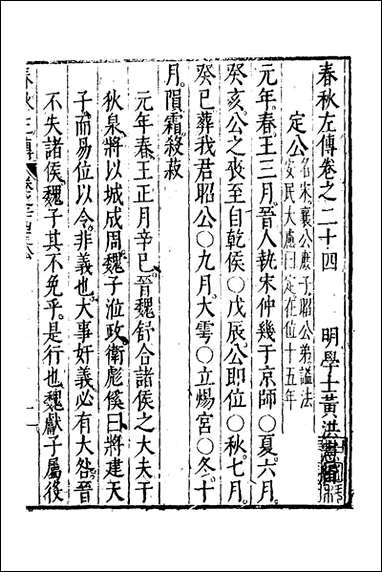 春秋左傳卷之二十四
明學士黃洪憲輯
定公名宋襄公庶子昭公弟謚法
安民大慮曰定在位十五年
元年春王三月晉人執宋仲幾于京師〇夏六月
癸亥公之喪至自乾侯〇戊辰公即位〇秋七月
癸巳葬我君昭公〇九月大雩〇立煬宮〇冬十
月隕霜殺菽
元年春王正月辛巳晉魏舒合諸侯之大夫于
狄泉將以城成周魏子涖政衛彪傒曰將建天
子而易位以令非義也大事奸義必有大咎晉
不失諸侯魏子其不免乎是行也魏獻子屬役
春秋左傳